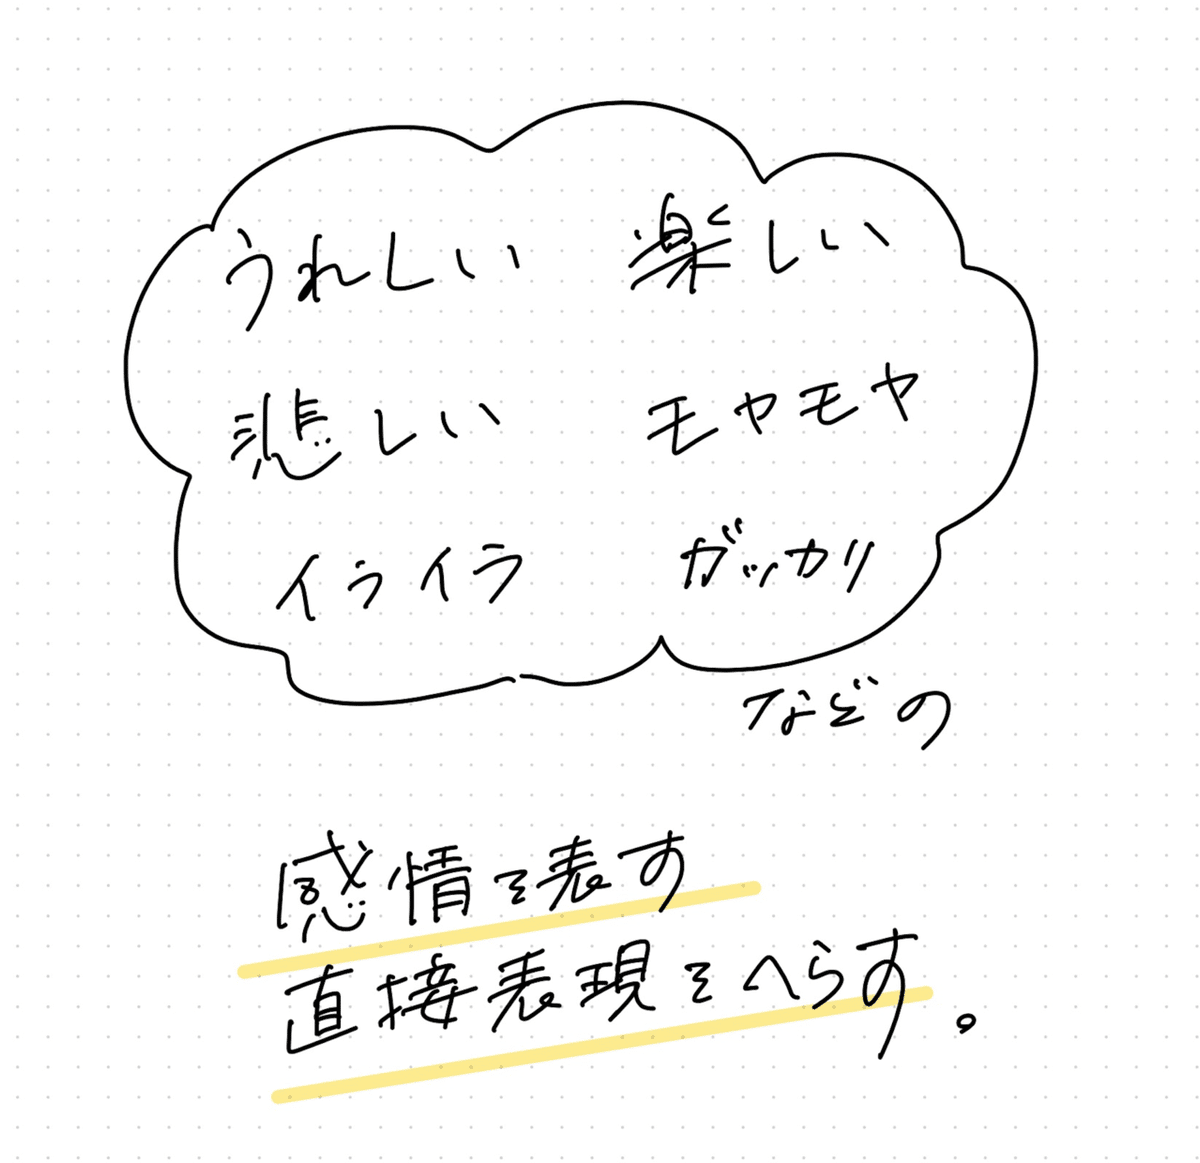 うれしい 楽しい
悲しい モヤモヤ
イライラ ガッカリ
などの
感情を表す
直接表現をへらす。